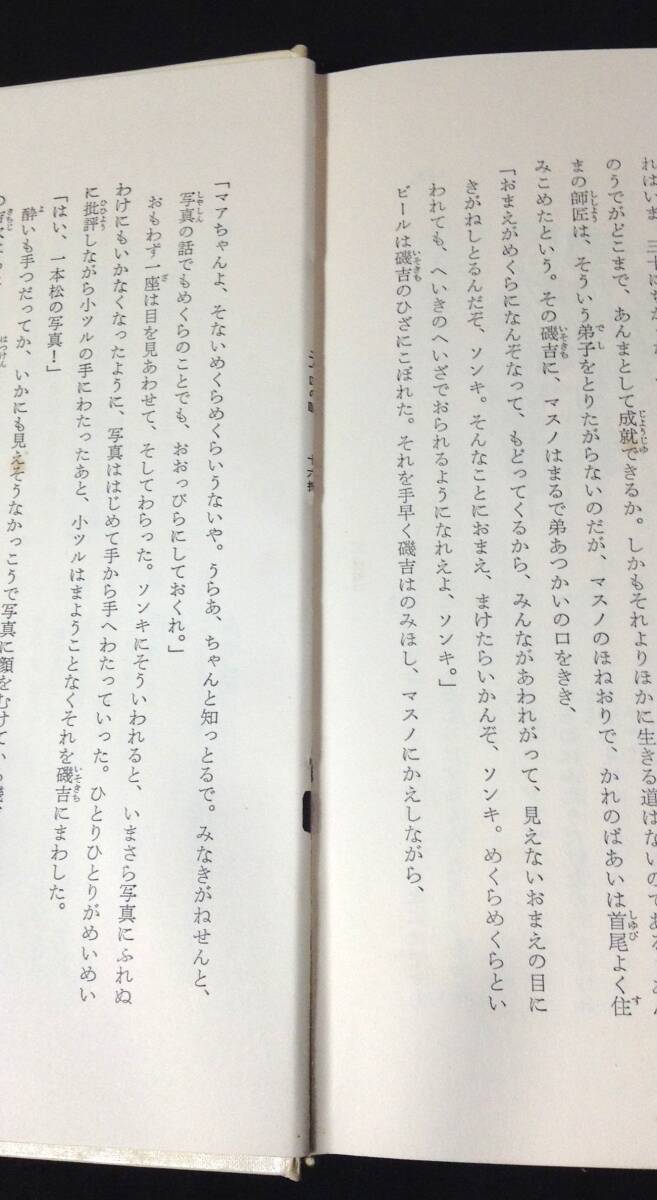 のうでがどこまで、あんまとして成就できるか。しかもそれよりほかに生きる道はないのである。
まの師匠は、そういう弟子をとりたがらないのだが、マスノのほねおりで、かれのばあいは首尾よく住
みこめたという。その磯吉に、マスノはまるで弟あつかいの口をきき、
「おまえがめくらになんぞなって、もどってくるから、みんながあわれがって、見えないおまえの目に
きがねしとるんだぞ、ソンキ。そんなことにおまえ、まけたらいかんぞ、ソンキ。めくらめくらとい
われても、へいきのへいざでおられるようになれえよ、ソンキ。」
ビールは磯吉のひざにこぼれた。それを手早く磯吉はのみほし、マスノにかえしながら、
「マアちゃんよ、そないめくらめくらいうないや。うらあ、ちゃんと知っとるで。みなきがねせんと、
写真の話でもめくらのことでも、おおっぴらにしておくれ。」
おもわず一座は目を見あわせて、そしてわらった。ソンキにそういわれると、いまさら写真にふれぬ
わけにもいかなくなったように、写真ははじめて手から手へわたっていった。ひとりひとりがめいめい
に批評しながら小ツルの手にわたったあと、小ツルはまようことなくそれを磯吉にまわした。
「はい、一本松の写真！」
酔いも手つだってか、いかにも見えそうなかっこうで写真に顔をむけている磯